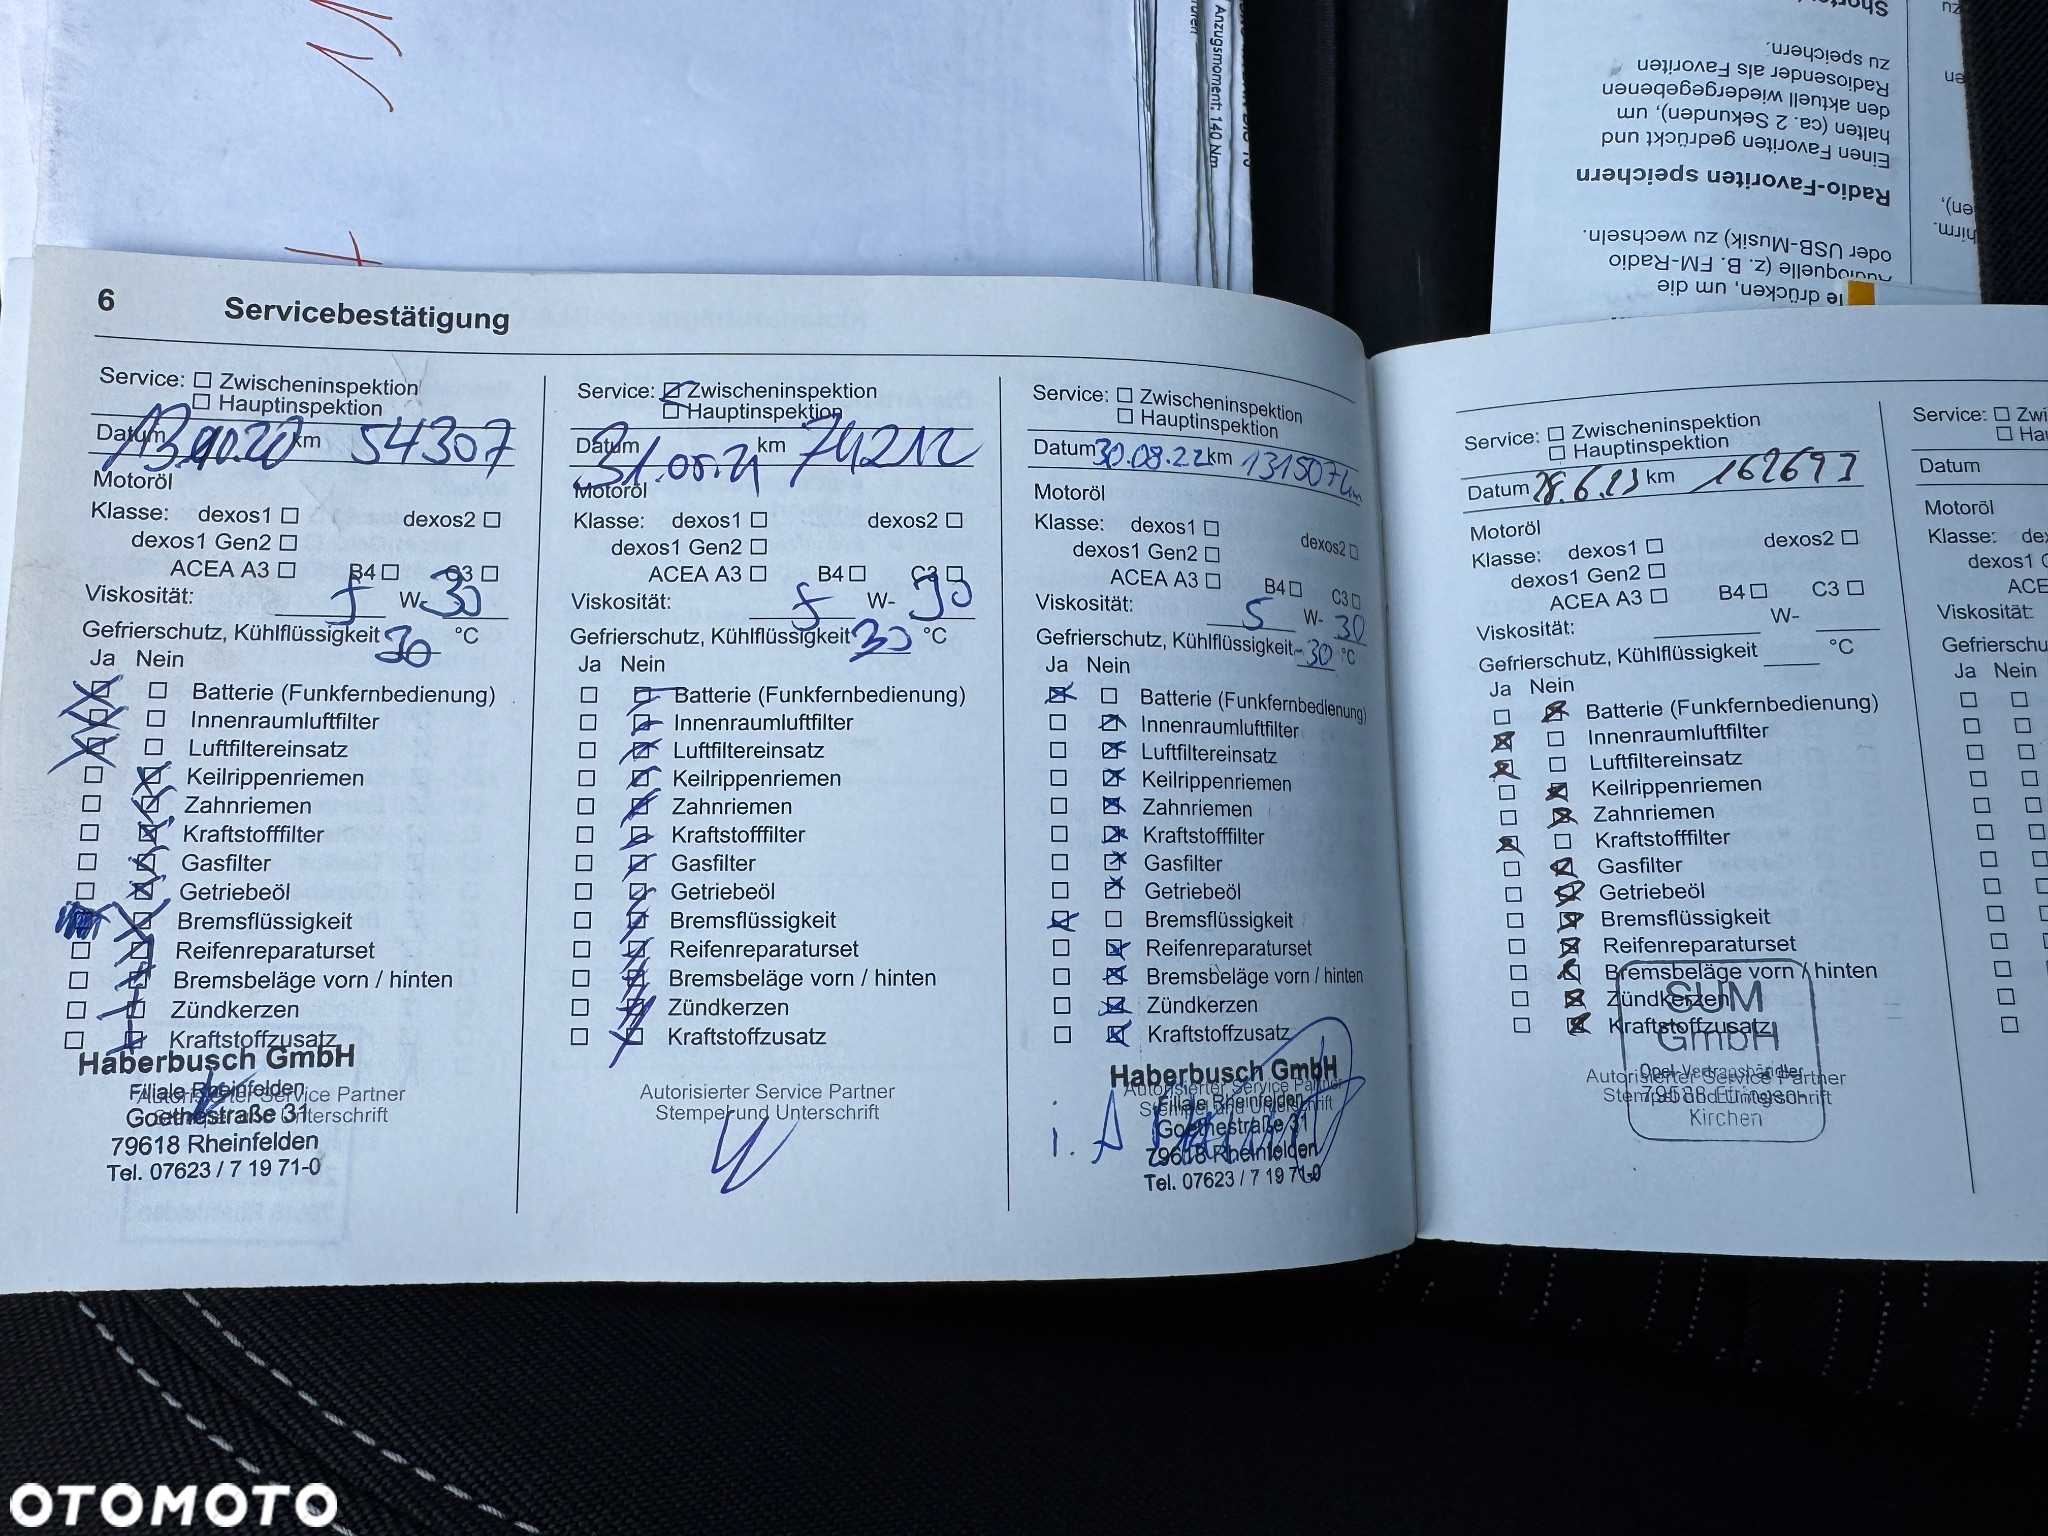 Anzugsmoment: 140 Nm
zu speichern.
Radiosender als Favoriten
den aktuell wiedergegebenen
halten (ca. 2 Sekunden), um
Einen Favoriten gedrückt und
Radio-Favoriten speichern
oder USB-Musik) zu wechseln.
Audioquelle (z. B. FM-Radio
te drücken, um die
6 Servicebestätigung
Service: Zwischeninspektion
Hauptinspektion
Datum km 54307
Motoröl
Klasse: dexos1 dexos2
dexos1 Gen2
ACEA A3 B4 C3
Viskosität: 5 W-30
Gefrierschutz, Kühlflüssigkeit 30 °C
Ja Nein
Batterie (Funkfernbedienung)
Innenraumluftfilter
Luftfiltereinsatz
Keilrippenriemen
Zahnriemen
Kraftstofffilter
Gasfilter
Getriebeöl
Bremsflüssigkeit
Reifenreparaturset
Bremsbeläge vorn / hinten
Zündkerzen
Kraftstoffzusatz
Haberbusch GmbH
Filiale Rheinfelden
Autorisierter Service Partner
Goethestraße 31
Stempel und Unterschrift
79618 Rheinfelden
Tel. 07623 / 7 19 71-0
Service: Zwischeninspektion
Hauptinspektion
Datum km
Motoröl
Klasse: dexos1 dexos2
dexos1 Gen2
ACEA A3 B4 C3
Viskosität: 5 W- 30
Gefrierschutz, Kühlflüssigkeit 30 °C
Ja Nein
Batterie (Funkfernbedienung)
Innenraumluftfilter
Luftfiltereinsatz
Keilrippenriemen
Zahnriemen
Kraftstofffilter
Gasfilter
Getriebeöl
Bremsflüssigkeit
Reifenreparaturset
Bremsbeläge vorn / hinten
Zündkerzen
Kraftstoffzusatz
Autorisierter Service Partner
Stempel und Unterschrift
Service: Zwischeninspektion
Hauptinspektion
Datum 30.08.22 km 131507km
Motoröl
Klasse: dexos1 dexos2
dexos1 Gen2
ACEA A3 B4 C3
Viskosität: 5 W- 30
Gefrierschutz, Kühlflüssigkeit -30 °C
Ja Nein
Batterie (Funkfernbedienung)
Innenraumluftfilter
Luftfiltereinsatz
Keilrippenriemen
Zahnriemen
Kraftstofffilter
Gasfilter
Getriebeöl
Bremsflüssigkeit
Reifenreparaturset
Bremsbeläge vorn / hinten
Zündkerzen
Kraftstoffzusatz
Haberbusch GmbH
Autorisierter Service Partner
Filiale Rheinfelden
Stempel und Unterschrift
Goethestraße 31
i. A
79618 Rheinfelden
Tel. 07623 / 7 19 71-0
Service: Zwischeninspektion
Hauptinspektion
Datum 28.6.23 km 162693
Motoröl
Klasse: dexos1 dexos2
dexos1 Gen2
ACEA A3 B4 C3
Viskosität: W-
Gefrierschutz, Kühlflüssigkeit °C
Ja Nein
Batterie (Funkfernbedienung)
Innenraumluftfilter
Luftfiltereinsatz
Keilrippenriemen
Zahnriemen
Kraftstofffilter
Gasfilter
Getriebeöl
Bremsflüssigkeit
Reifenreparaturset
Bremsbeläge vorn / hinten
Zündkerzen
Kraftstoffzusatz
SUM
GmbH
Opel-Vertragshändler
Autorisierter Service Partner
Stempel und Unterschrift
79588 Efringen-
Kirchen
Service: Zwi
Hau
Datum
Motoröl
Klasse: dex
dexos1 G
ACE
Viskosität:
Gefrierschu
Ja Nein
OTOMOTO